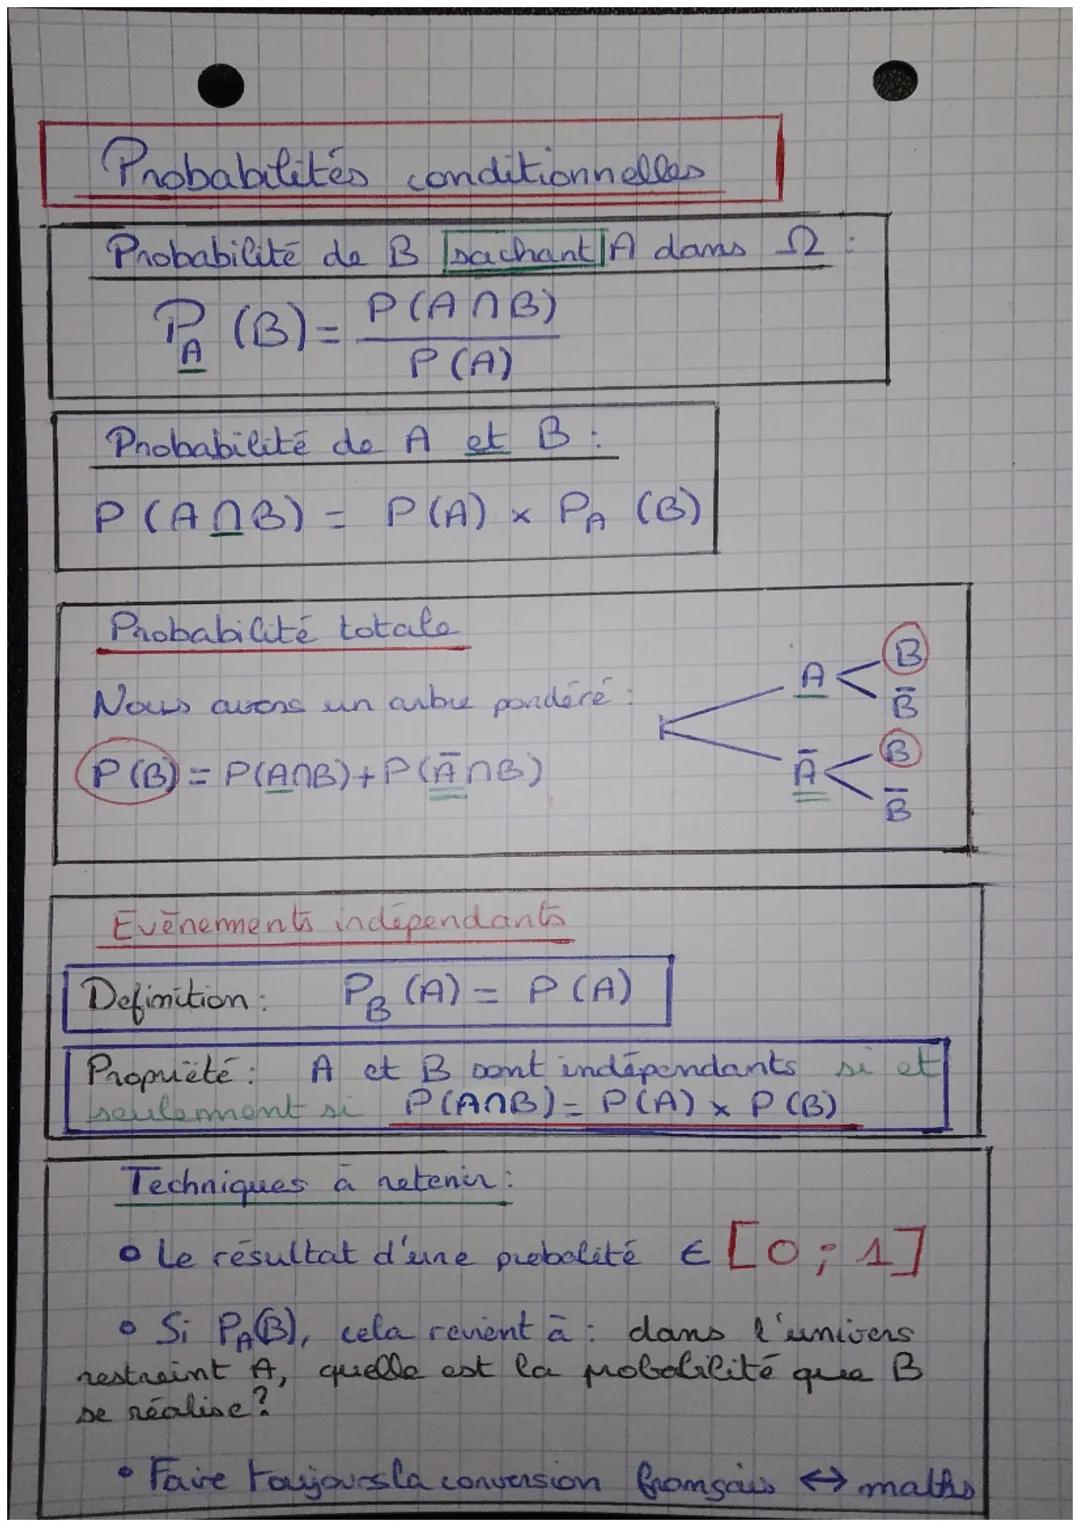 Probabilités conditionnelles
Probabilité de B sachant A dans Ω :
P_A (B) = P(A∩B) / P(A)
Probabilité de A et B :
P(A∩B) = P(A) × P_A (B)
Probabilité totale
Nous avons un arbre pondéré :
A B
B̄
Ā B
B̄
P(B) = P(A∩B) + P(Ā∩B)
Evēnements indépendants
Definition : P_B (A) = P(A)
Propriété : A et B sont indépendants si et
seulement si P(A∩B) = P(A) × P(B)
Techniques à retenir :
• Le résultat d'une probalité ∈ [0 ; 1]
• Si P_A(B), cela revient à : dans l'univers
restreint A, quelle est la probabilité que B
se réalise ?
• Faire toujours la conversion français ↔ maths